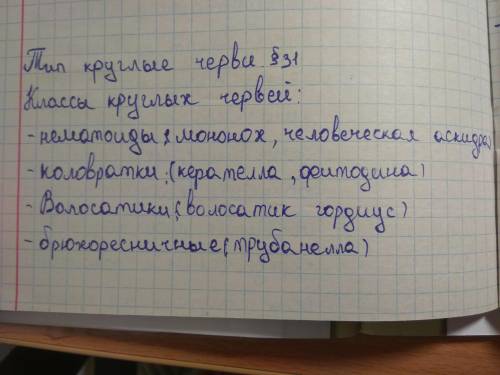 Тип круглые черви §31
Классы круглых червей:
- нематоиды; мононох, человеческая аскидра)
- коловратки: (керателла, фитодина)
- Волосатики; (волосатик гордиус)
- брюхоресничные (трубанелла)